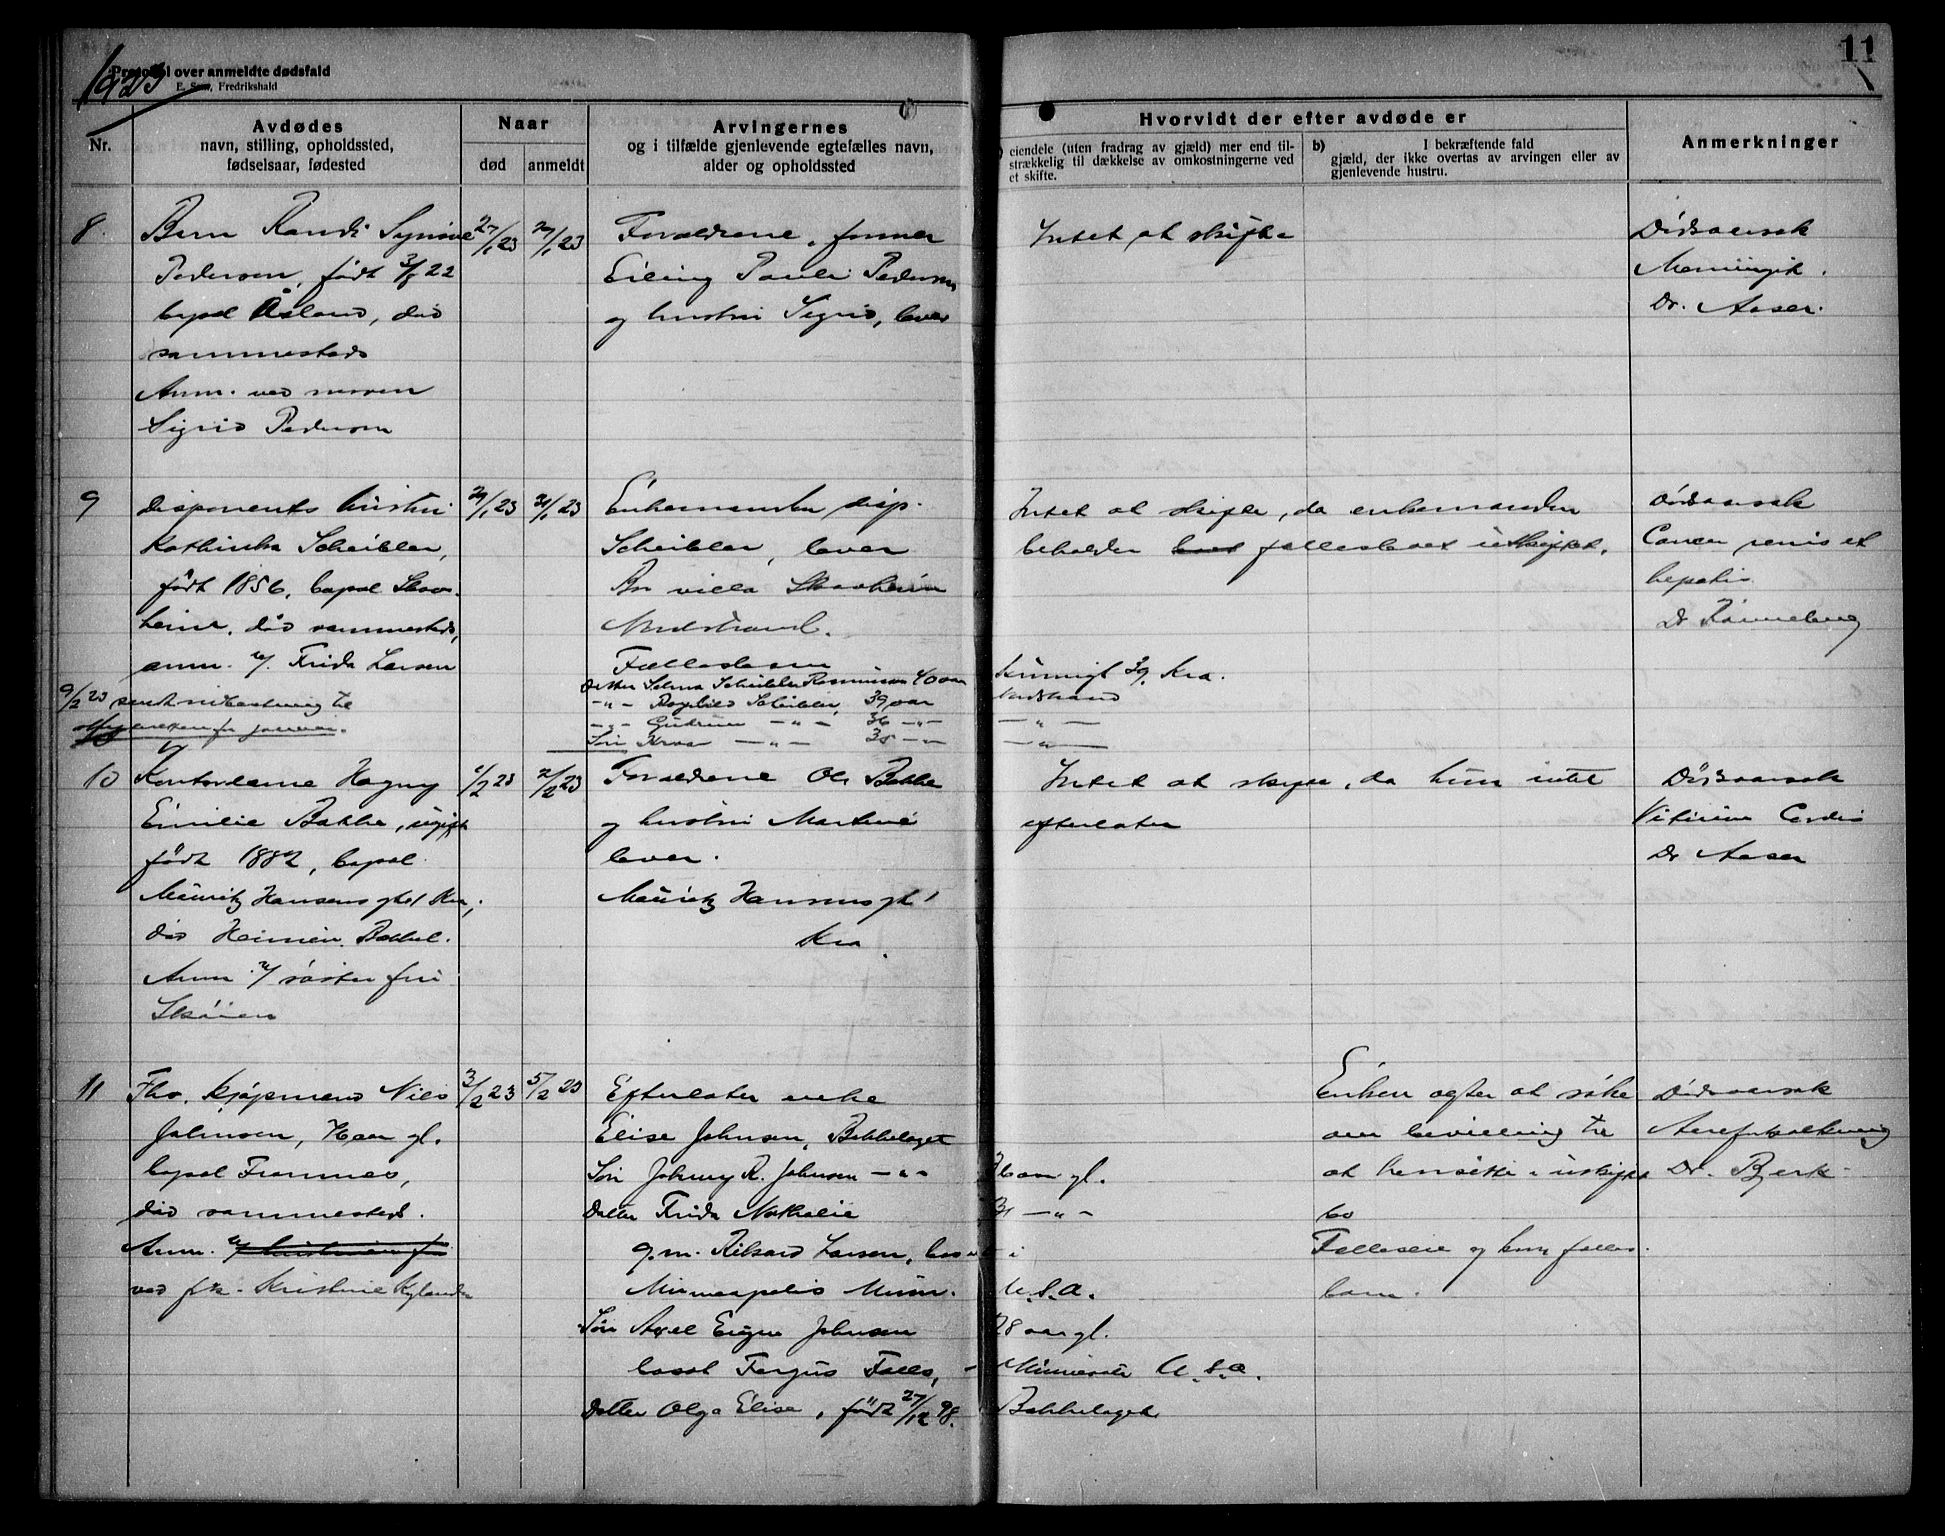 11
1923
Protokol over anmeldte dødsfald
E. Sem, Fredrikshald
Nr.
Avdødes
navn, stilling, opholdssted,
fødselsaar, fødested
Naar
død
anmeldt
Arvingernes
og i tilfælde gjenlevende egtefælles navn,
alder og opholdssted
Hvorvidt der efter avdøde er
eiendele (uten fradrag av gjæld) mer end til-
strækkelig til dækkelse av omkostningerne ved
et skifte.
b) I bekræftende fald
gjæld, der ikke overtas av arvingen eller av
gjenlevende hustru.
Anmerkninger
8.
Barn Randi Synnøve
Pedersen, født 3/5 22
bopæl Åsland, død
sammesteds
Anm. ved moren
Sigrid Pedersen
27/1 23
29/1 23
Forældrene, former
Erling Pauli Pedersen
og hustru Sigrid, lever
Intet at skifte
Dødsaarsak
Meningit.
Dr. Aaser.
9
Disponents hustru
Kathinka Scheibler,
født 1856, bopæl Skov-
heim, død sammesteds,
anm. v/ Frida Larsen
9/2 23 sendt til
29/1 23
31/1 23
Enkemanden disp.
Scheibler, lever
Bor villa Skovheim
Nordstrand.
Fællesbarn
Datter Selma Scheibler Rasmussen 40 aar
-"- Ragnhild Scheibler, 39 aar
-"- Gudrun -"- 36 -"-
Søn -"- 35 -"-
39, Kra.
Nordstrand
-"-
-"-
Intet at skifte, da enkemanden
beholder boet fællesboet uskiftet.
Dødsaarsak
Cancer renis et
hepatis
Dr Rønneberg
10
Kontordame Hagny
Emilie Bakke, ugift
født 1882, bopæl
Mauritz Hansens gt 1 Kra,
død Heimen, Bækkel.
Anm. v/ søster fru
Skøien
1/2 23
2/2 23
Forældrene Ole Bakke
og hustru Martine
lever.
Mauritz Hansens gt 1
Kra.
Intet at skifte, da hun intet
efterlater
Dødsaarsak
Vitium Cordis
Dr Aaser
11
Fhv. kjøpmand Nils
Johnsen, gl.
bopæl Framnes,
død sammesteds.
Anm. v/ hustruen fru
ved frk. Kristine Nylander
3/2 23
5/2 23
Efterlater enke
Elise Johnsen, Bekkelaget
Søn Johnny R. Johnsen -"-
Datter Frida Nathalie
g.m. Rikard Larsen, bosat i
Minneapolis Minn. U.S.A.
Søn Axel Eugen Johnsen 28 aar gl.
bosat Fergus Falls, - Minnesota U.S.A.
Datter Olga Elise, født 27/12 98. Bekkelaget
aar gl.
31 -"-
Enken agter at søke
om bevilling til
at hensitte i uskiftet
bo
Fælleseie og kun fælles-
barn.
Dødsaarsak
Aareforkalkning
Dr. Bjerk-